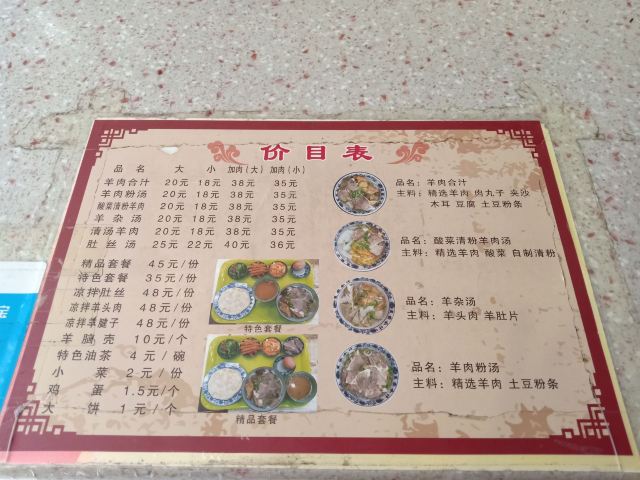 价目表
品 名 大 小 加肉(大) 加肉(小)
羊肉合汁 20元 18元 38元 35元
羊肉粉汤 20元 18元 38元 35元
酸菜清粉羊肉 20元 18元 38元 35元
羊杂汤 20元 18元 38元 35元
清汤羊肉 20元 18元 38元 35元
肚丝汤 25元 22元 40元 36元
精品套餐 45元/份
特色套餐 35元/份
凉拌肚丝 48元/份
凉拌羊头肉 48元/份
凉拌羊腱子 48元/份
羊腿壳 10元/个
特色油茶 4元/碗
小菜 2元/份
鸡蛋 1.5元/个
大饼 1元/个
特色套餐
精品套餐
品名:羊肉合汁
主料:精选羊肉 肉丸子 夹沙
木耳 豆腐 土豆粉条
品名:酸菜清粉羊肉汤
主料:精选羊肉 酸菜 自制清粉
品名:羊杂汤
主料:羊头肉 羊肚片
品名:羊肉粉汤
主料:精选羊肉 土豆粉条
宝